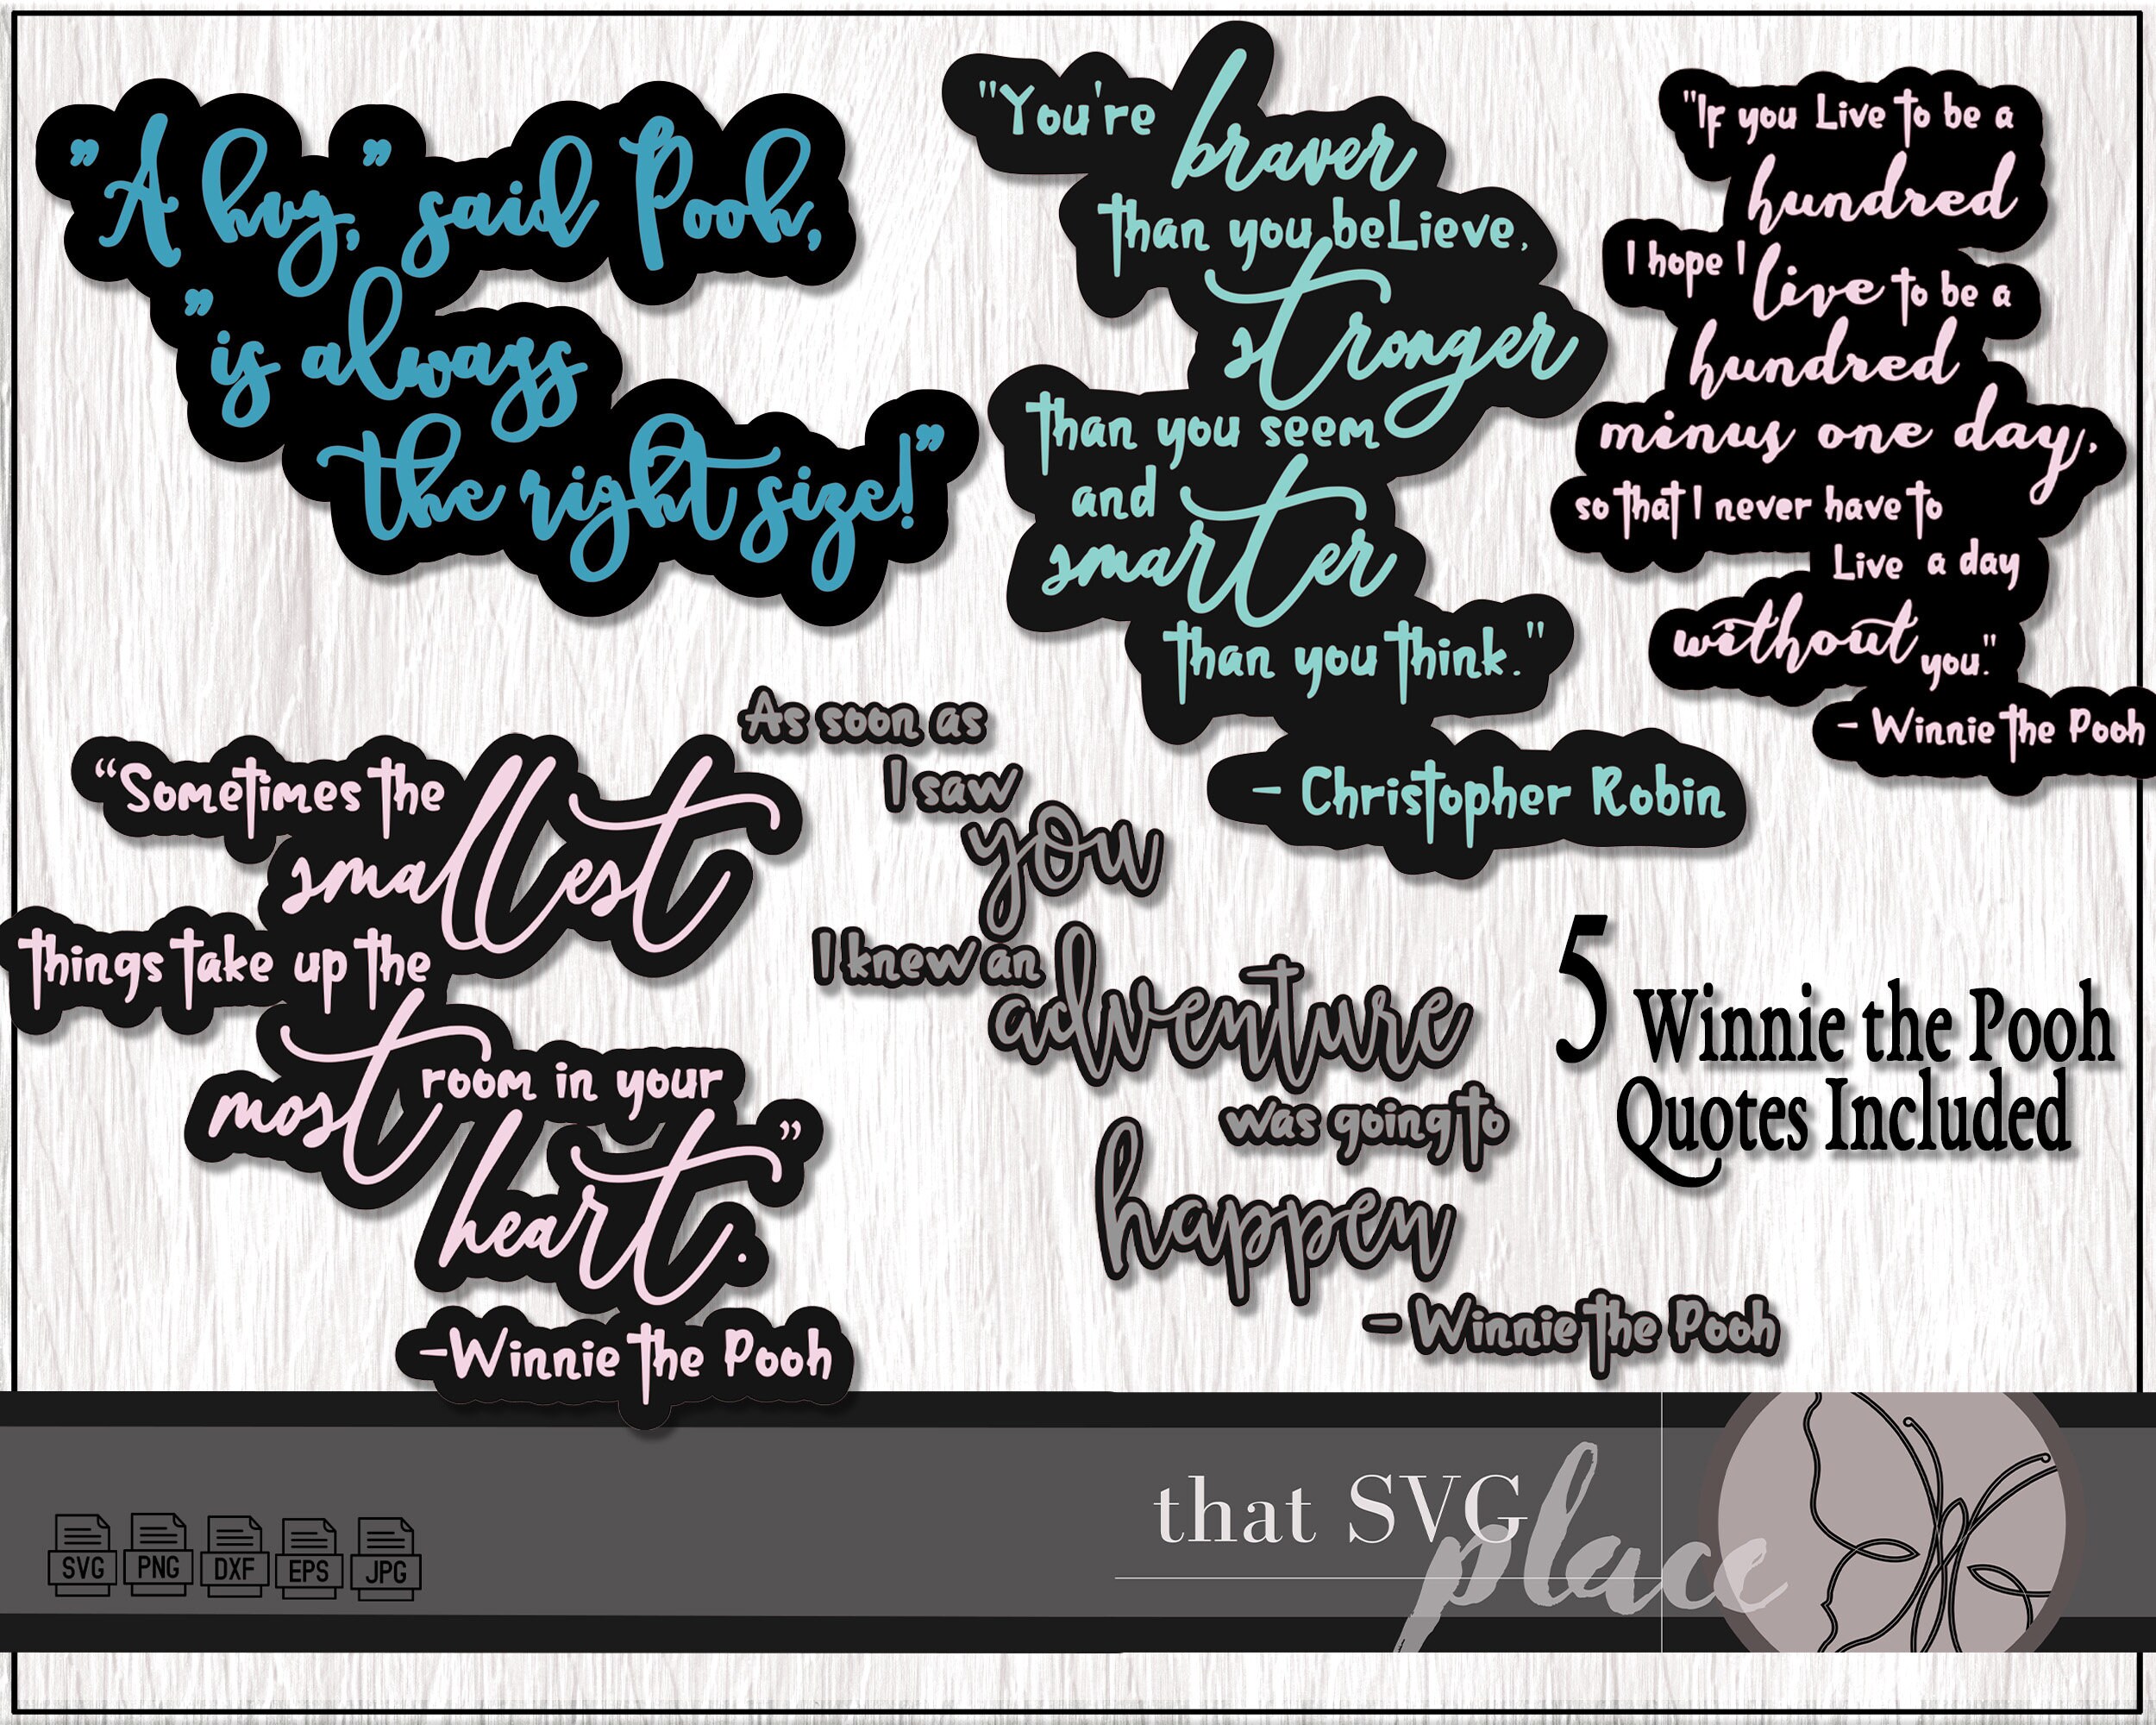 "A hug," said Pooh,
"is always
the right size!"
"You're braver
than you believe,
stronger
than you seem
and
smarter
than you think."
- Christopher Robin
"If you Live to be a
hundred
I hope I live to be a
hundred
minus one day,
so that I never have to
Live a day
without you."
- Winnie the Pooh
“Sometimes the
smallest
things take up the
most room in your
heart.”
-Winnie the Pooh
As soon as
I saw
you
I knew an
adventure
was going to
happen
- Winnie the Pooh
5 Winnie the Pooh
Quotes Included
SVG PNG DXF EPS JPG
that SVG
place